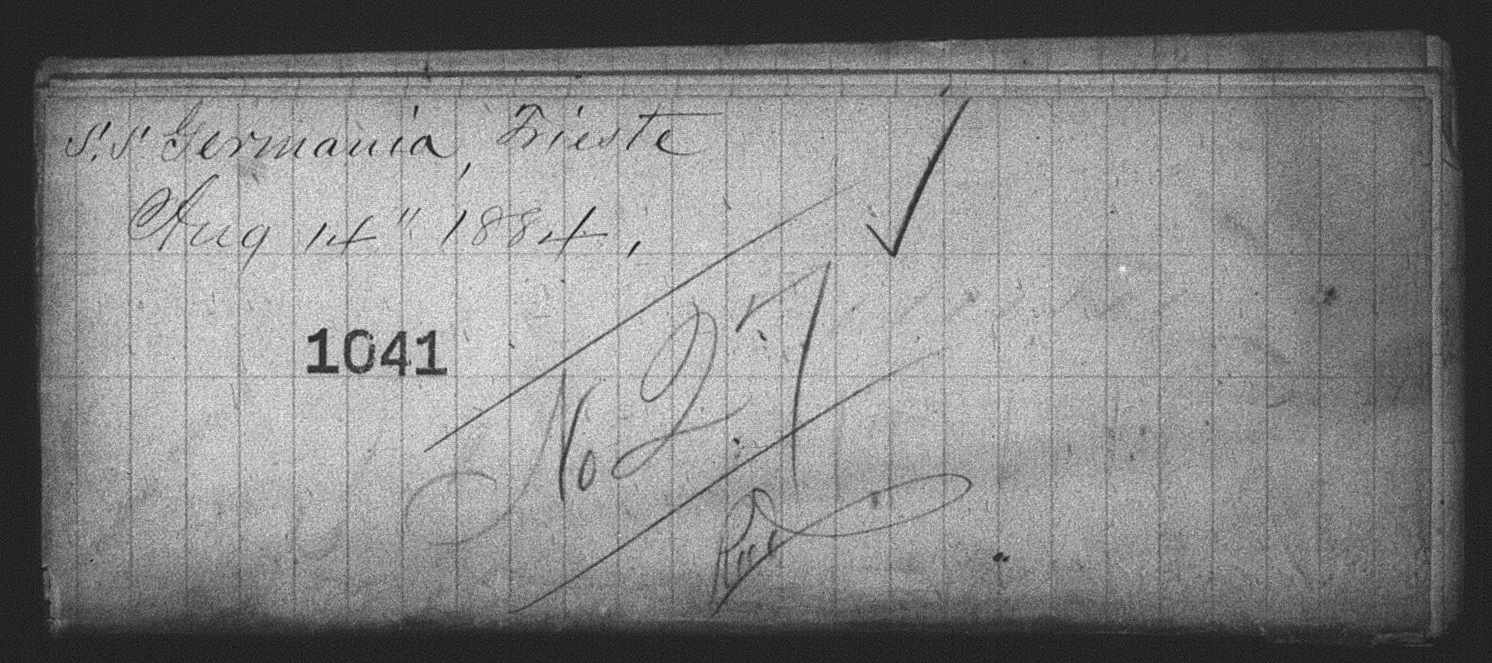 S.S Germania, Trieste
Aug 14" 1884,
1041
No 27